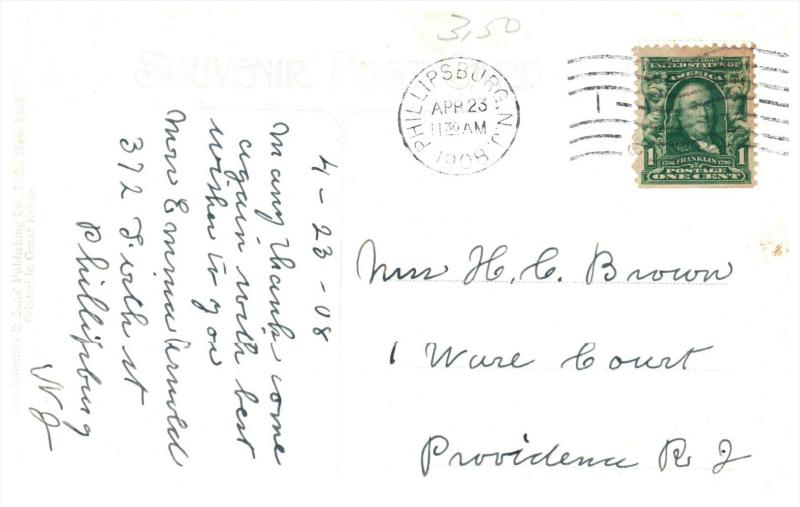 3,50
SOUVENIR POST CARD
PHILLIPSBURG, N.J.
APR 23
11 30 AM
1908
1
SERIES 1902
UNITED STATES OF
AMERICA
1706 FRANKLIN 1790
1 1
POSTAGE
ONE CENT
4-23-08
Many thanks come
again with best
wishes to you
Mrs Emma Arnold
372 Firth st
Phillipsburg
N J
Mrs H. C. Brown
1 Ware Court
Providence R I
& Sons' Publishing Co., Ltd., New York
Printed in Great Britain